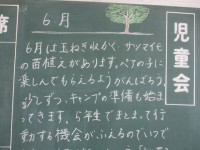 席
6月
児童会
6月は玉ねぎ収かく、サツマイモ
の苗植えがあります。ペアの子に
楽しんでもらえるようがんばろう。
少しずつ、キャンプの準備も始ま
ってきます。5年生でまとまって行
動する機会がふえるのでいつで